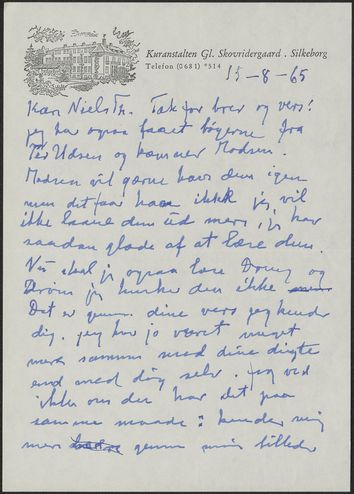 Kuranstalten Gl. Skovridergaard . Silkeborg
Telefon (0681) *514
15-8-65
Kære Niels Th. Tak for brev og vers!
jeg har ogsaa faaet bøgerne fra
Per Udsen og Madsen.
Madsen vil gerne have den igen
men det faar han ikke jeg vil
ikke laane den ud mere, jeg har
saadan glæde af at læse dem.
Nu skal jeg ogsaa læse og
Drøm jeg husker den ikke
Det er gennem dine vers jeg kender
dig. jeg har jo været meget
mere sammen med dine digte
end med dig selv. Jeg ved
ikke om du har det paa
samme maade: kender mig
mere gennem mine billeder